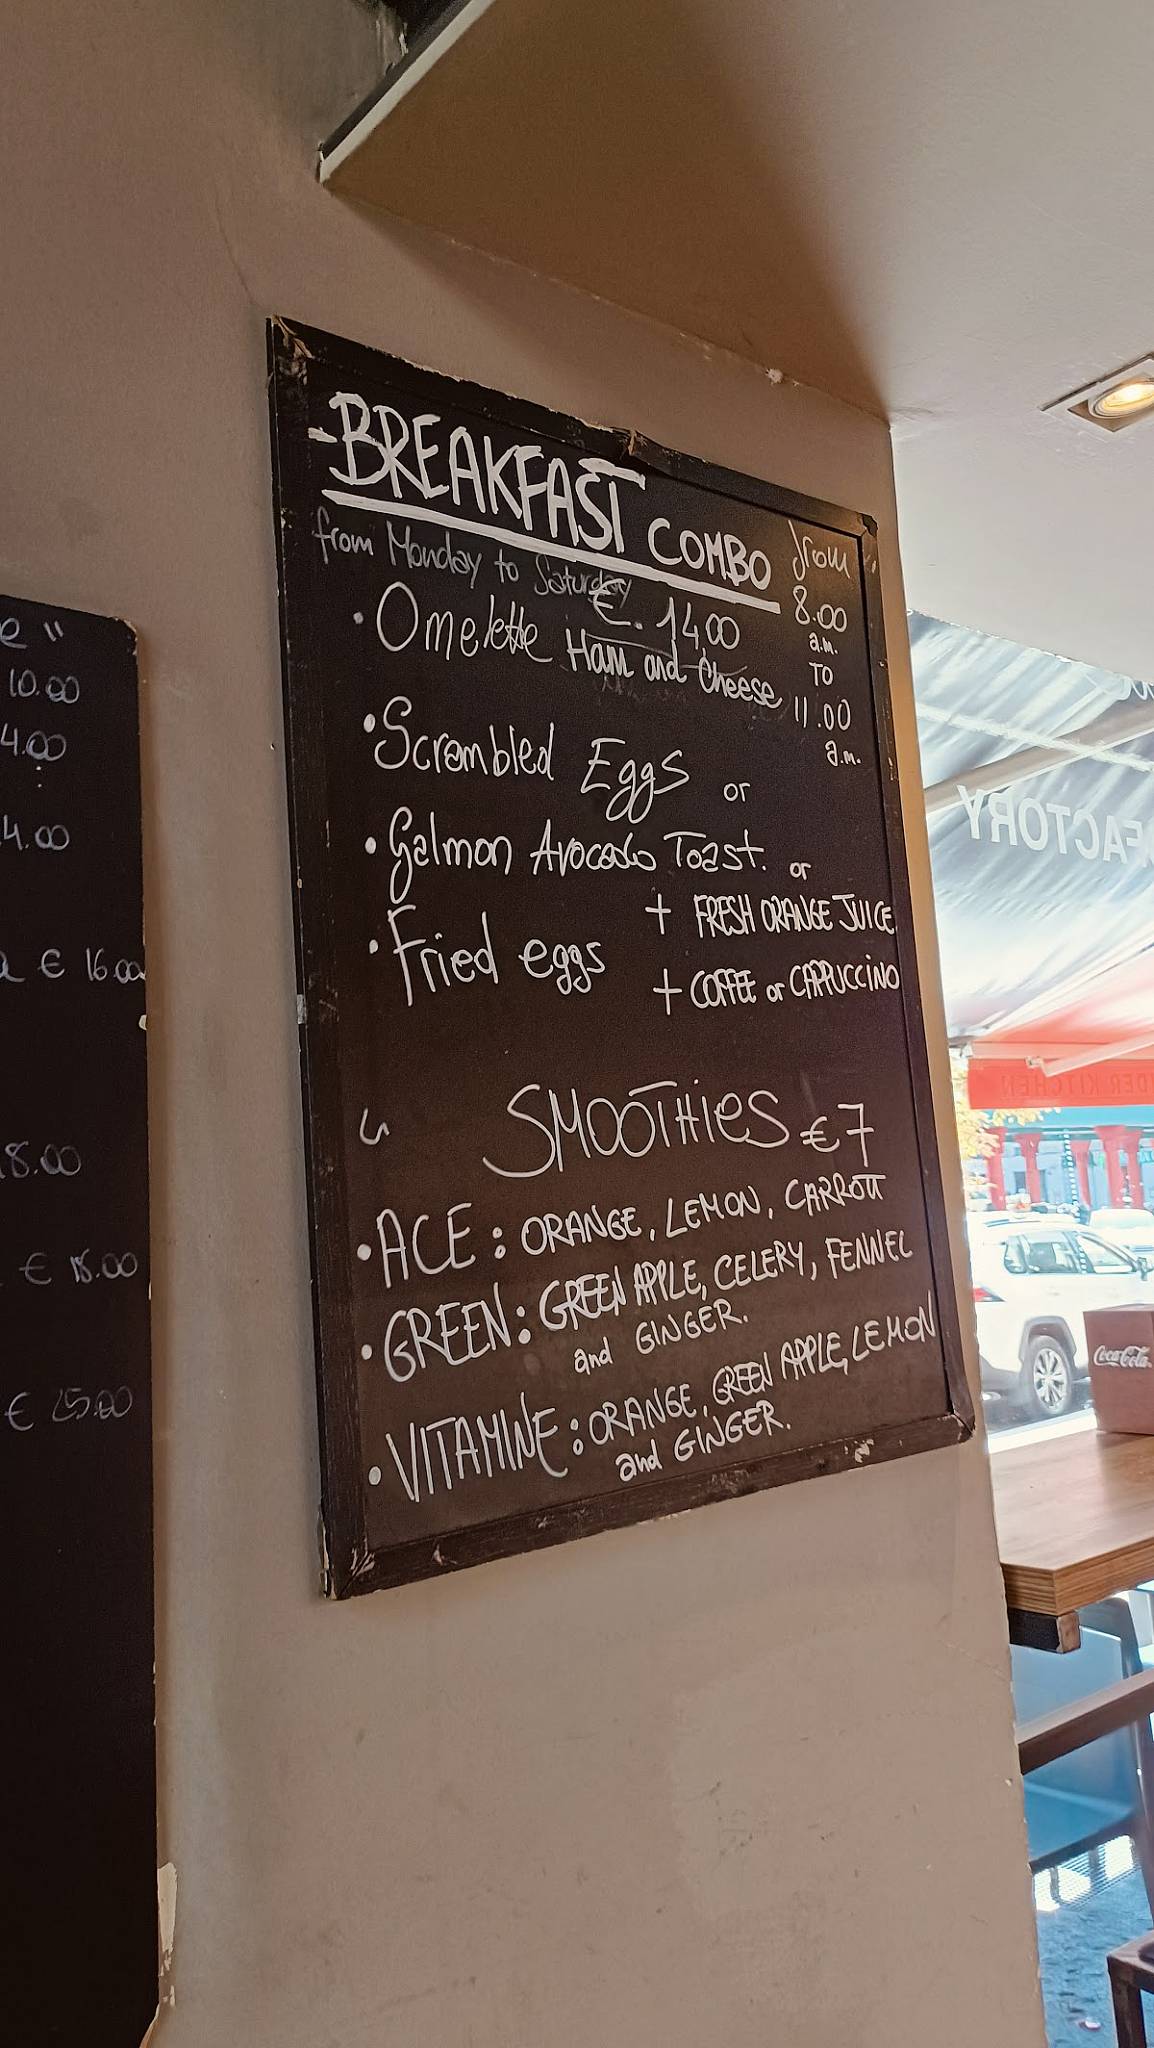 e "
10.00
4.00
4.00
€ 16.00
18.00
€ 18.00
€ 25.00
-BREAKFAST COMBO
from Monday to Saturday
€. 14,00
from
8.00
a.m.
TO
11.00
a.m.
• Omelette Ham and Cheese
• Scrambled Eggs or
• Salmon Avocado Toast. or
• Fried eggs
+ FRESH ORANGE JUICE
+ COFFEE or CAPPUCCINO
SMOOTHIES € 7
• ACE: ORANGE, LEMON, CARROTT
• GREEN: GREEN APPLE, CELERY, FENNEL
and GINGER.
• VITAMINE: ORANGE, GREEN APPLE, LEMON
and GINGER.
FACTORY
DER KITCHEN
Coca-Cola